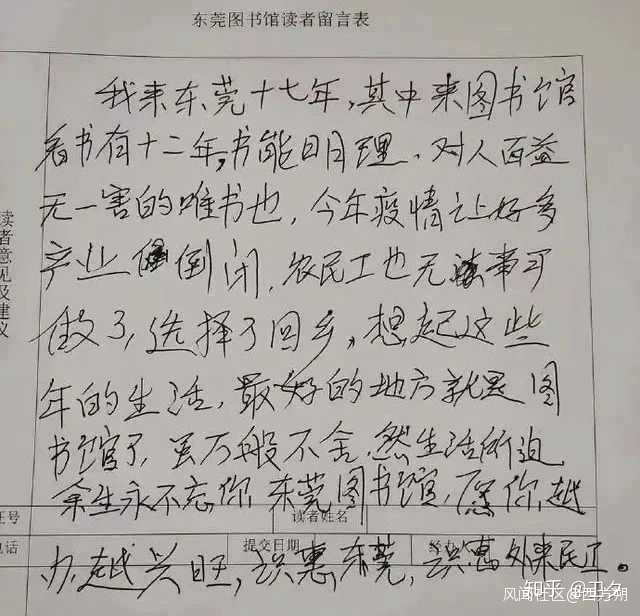 东莞图书馆读者留言表
我来东莞十七年,其中来图书馆
看书有十二年,书能明理、对人百益
无一害的唯书也,今年疫情让好多
产业倒闭,农民工也无事可
做了,选择了回乡,想起这些
年的生活,最好的地方就是图
书馆了,虽万般不舍,然生活所迫
余生永不忘你,东莞图书馆,愿你越
办越兴旺,识惠东莞,识惠外来民工。
读者意见及建议
证号
读者姓名
电话
提交日期
知乎 @卫夕
风闻社区@西方朔